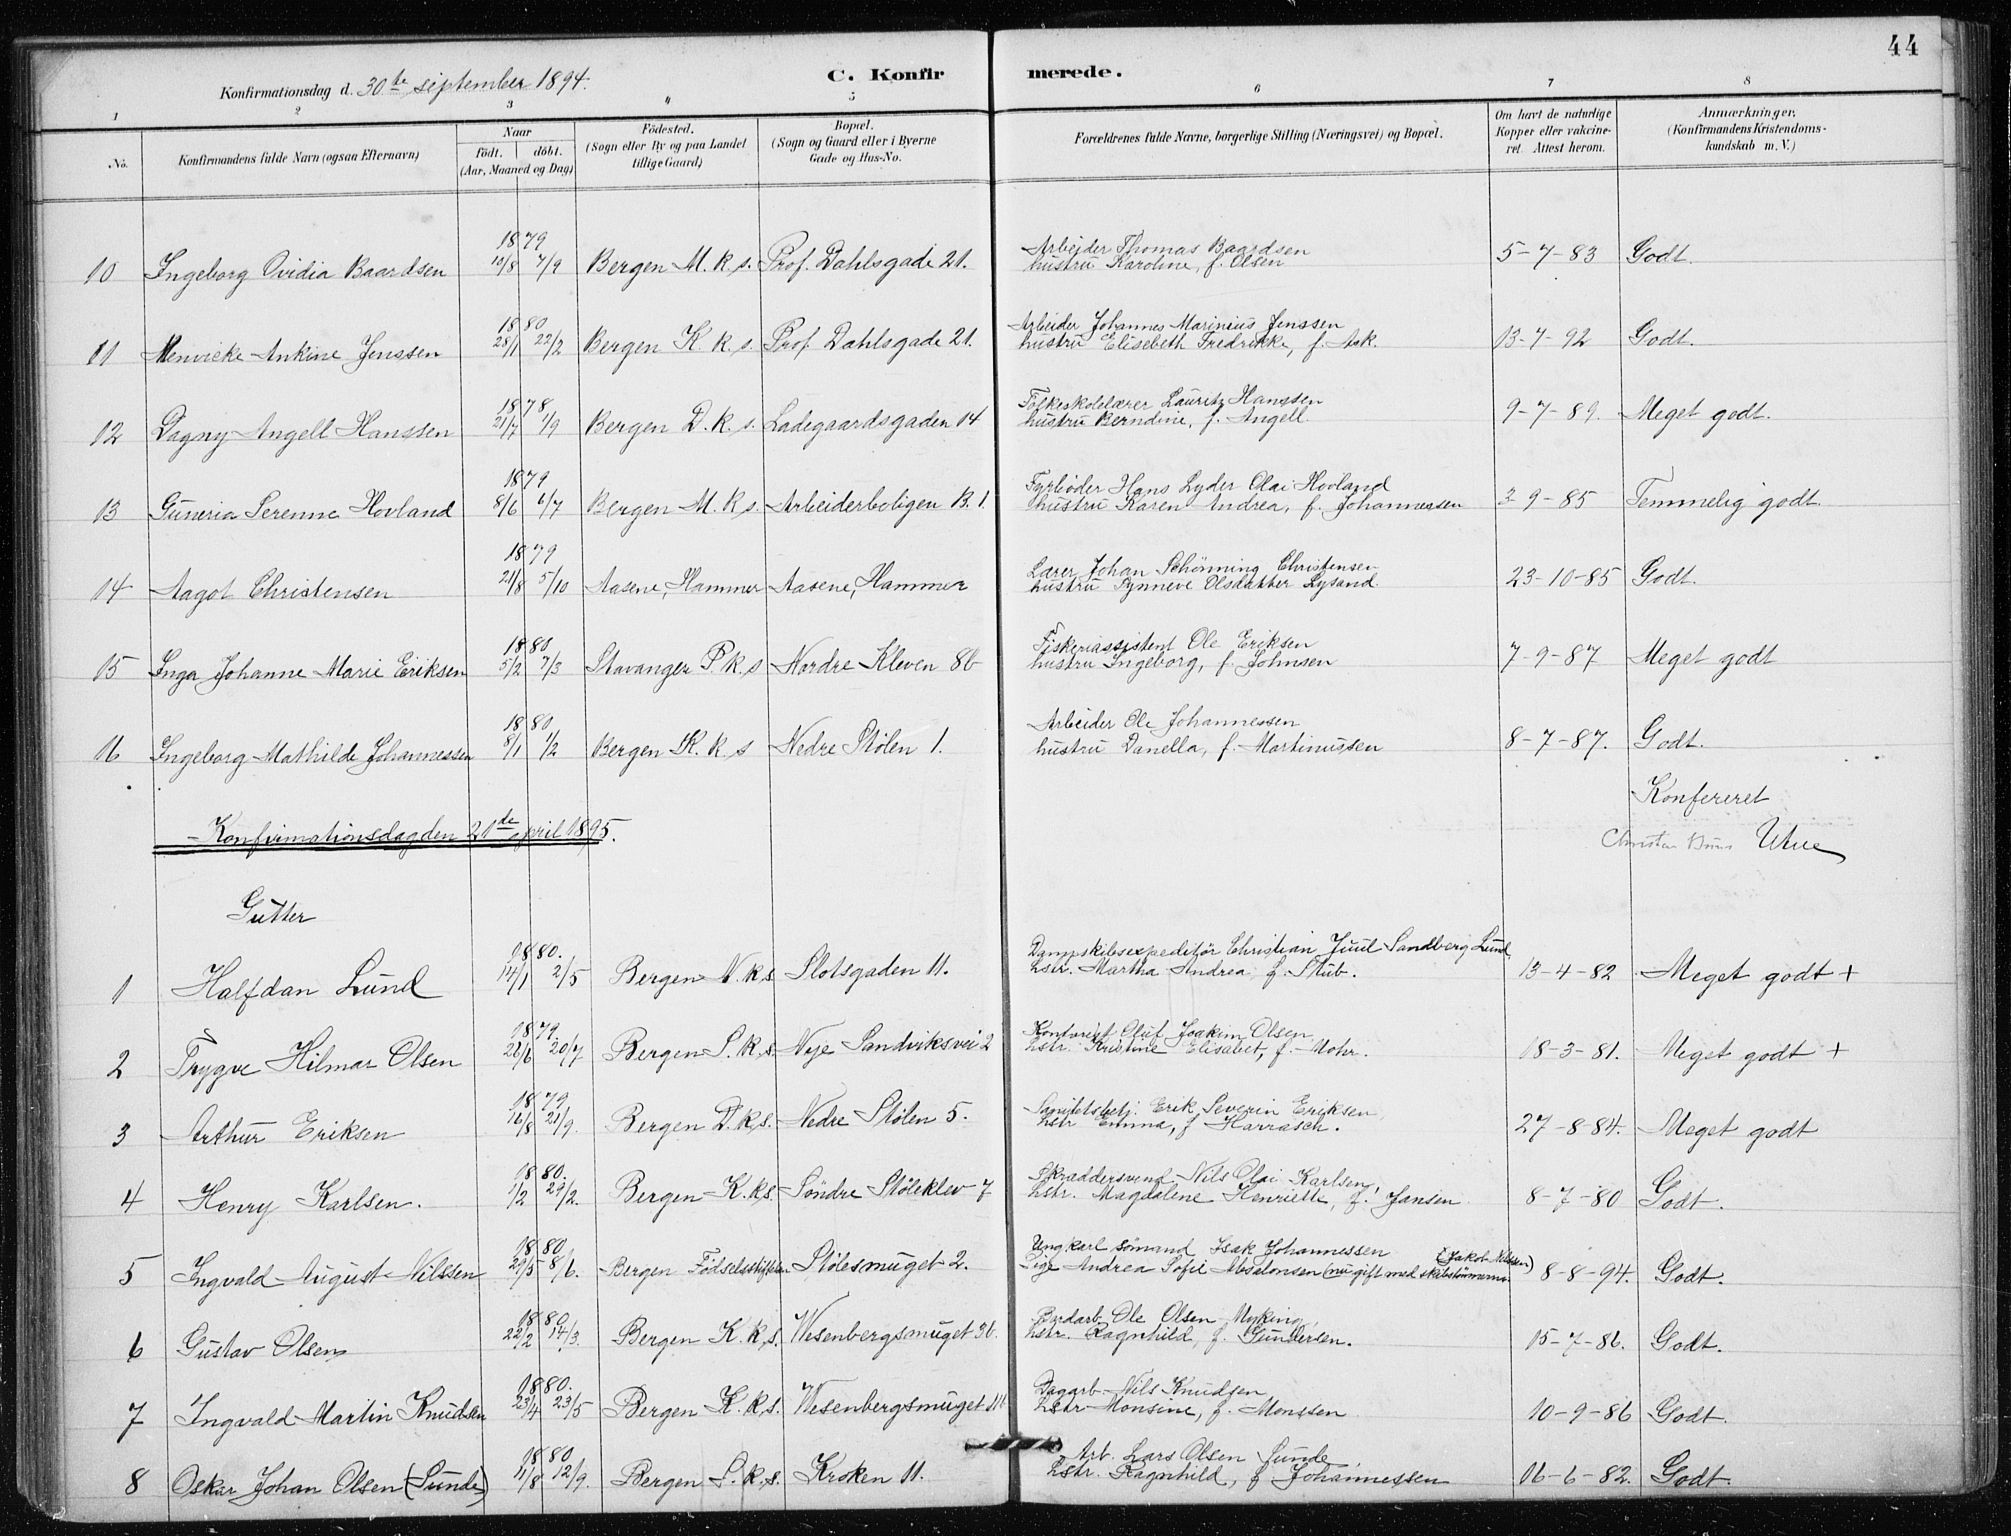 44
Konfirmationsdag d. 30te september 1894. C. Konfirmerede.
1 2 3 4 5 6 7 8
No. Konfirmandens fulde Navn (ogsaa Efternavn) Naar födt. döbt. (Aar, Maaned og Dag) Födested. (Sogn eller By og paa Landet tillige Gaard) Bopæl. (Sogn og Gaard eller i Byerne Gade og Hus-No. Forældrenes fulde Navne, borgerlige Stilling (Næringsvei) og Bopæl. Om havt de naturlige Kopper eller vakcineret. Attest herom. Anmærkninger. (Konfirmandens Kristendomskundskab m. V.)
1879 Arbeider Thomas Baardsen
10 Ingeborg Ovidia Baardsen 10/8 7/9 Bergen M. k. s. Prof. Dahlsgade 21. hustru Karoline, f. Olsen 5-7-83 Godt.
1880 Arbeider Johannes Marinius Jenssen
11 Henvicke Ankine Jenssen 28/1 22/2 Bergen K. k. s. Prof. Dahlsgade 21. hustru Elisebeth Fredrikke, f. Ask. 13-7-92 Godt.
1878 Folkeskolelærer Lauritz Hanssen
12 Dagny Angell Hanssen 21/7 1/9 Bergen D. k. s. Ladegaardsgaden 14 hustru Berndine, f. Angell. 9-7-89. Meget godt.
1879 Fyrbøder Hans Lyder Olai Hovland
13 Guneria Serenne Hovland 8/6 6/7 Bergen M. k. s. Arbeiderboligen B. 1 hustru Karen Andrea, f. Johannessen 3-9-85 Temmelig godt.
1879 Lærer Johan Schönning Christensen
14 Aagot Christensen 21/8 5/10 Aasene, Hammer Aasene, Hammer hustru Synneve Olsdatter Lysand. 23-10-85 Godt.
1880 Fiskeriassistent Ole Eriksen
15 Inga Johanne Marie Eriksen 5/2 7/3 Stavanger P. k. s Nordre Kleven 8b hustru Ingeborg, f. Johnsen 7-9-87 Meget godt
1880 Arbeider Ole Johannessen
16 Ingeborg Mathilde Johannessen 8/1 1/2 Bergen K. k. s Nedre Stølen 1. hustru Danella, f. Martinussen 8-7-87. Godt.
Konfereret
- Konfirmationsdag den 21de april 1895.
Gutter
1880. Dampskibsexpeditör Christian Juul Sandberg Lund
1 Halfdan Lund 14/1 2/5 Bergen N. k. s Slotsgaden 11. hstr. Martha Andrea f. Stub. 13-4-82 Meget godt +
1879. Kontorist Oluf Joakim Olsen
2 Trygve Hilmar Olsen 22/6 20/7 Bergen S. k. s. Nye Sandviksvei 2 hstr. Kristine Elisabet, f. Mohr. 18-3-81. Meget godt +
1879 Sanitetsbetj. Erik Severin Eriksen
3 Arthur Eriksen 16/8 21/9. Bergen D. k. s. Nedre Stølen 5. hstr Emma, f Harrasch. 27-8-84. Meget godt
1880. Skraddersvend Nils Olai Karlsen
4 Henry Karlsen. 1/2 29/2. Bergen K. k. s. Söndre Støleklev 7 hstr. Magdalene Henriette, f. Jansen 8-7-80 Godt.
1880 Ungkarl sömand Isak Johannessen (Jakob Nilssen)
5 Ingvald August Nilssen 29/5 8/6. Bergen Födselsstiftelsen Stølesmuget 2. Pige Andrea Sofie Absalonsen (nu gift med skibstömmerm. 8-8-94. Godt.
1880 Ole Olsen Myking,
6 Gustav Olsen 22/2 14/3. Bergen K. k. s. Wesenbergsmuget 3b. hstr. Ragnhild, f. Gundersen. 15-7-86. Godt.
1880. Dagarb. Nils Knudsen
7 Ingvald Martin Knudsen 23/4 23/5 Bergen K. k. s. Wesenbergsmuget hstr Monsine, f. Monssen 10-9-86 Godt.
1880 Arb. Lars Olsen Sunde
8 Oskar Johan Olsen (Sunde) 11/8 12/9. Bergen S. k. s. Kroken 11. hstr. Ragnhild, f Johannessen 16-6-82. Godt.